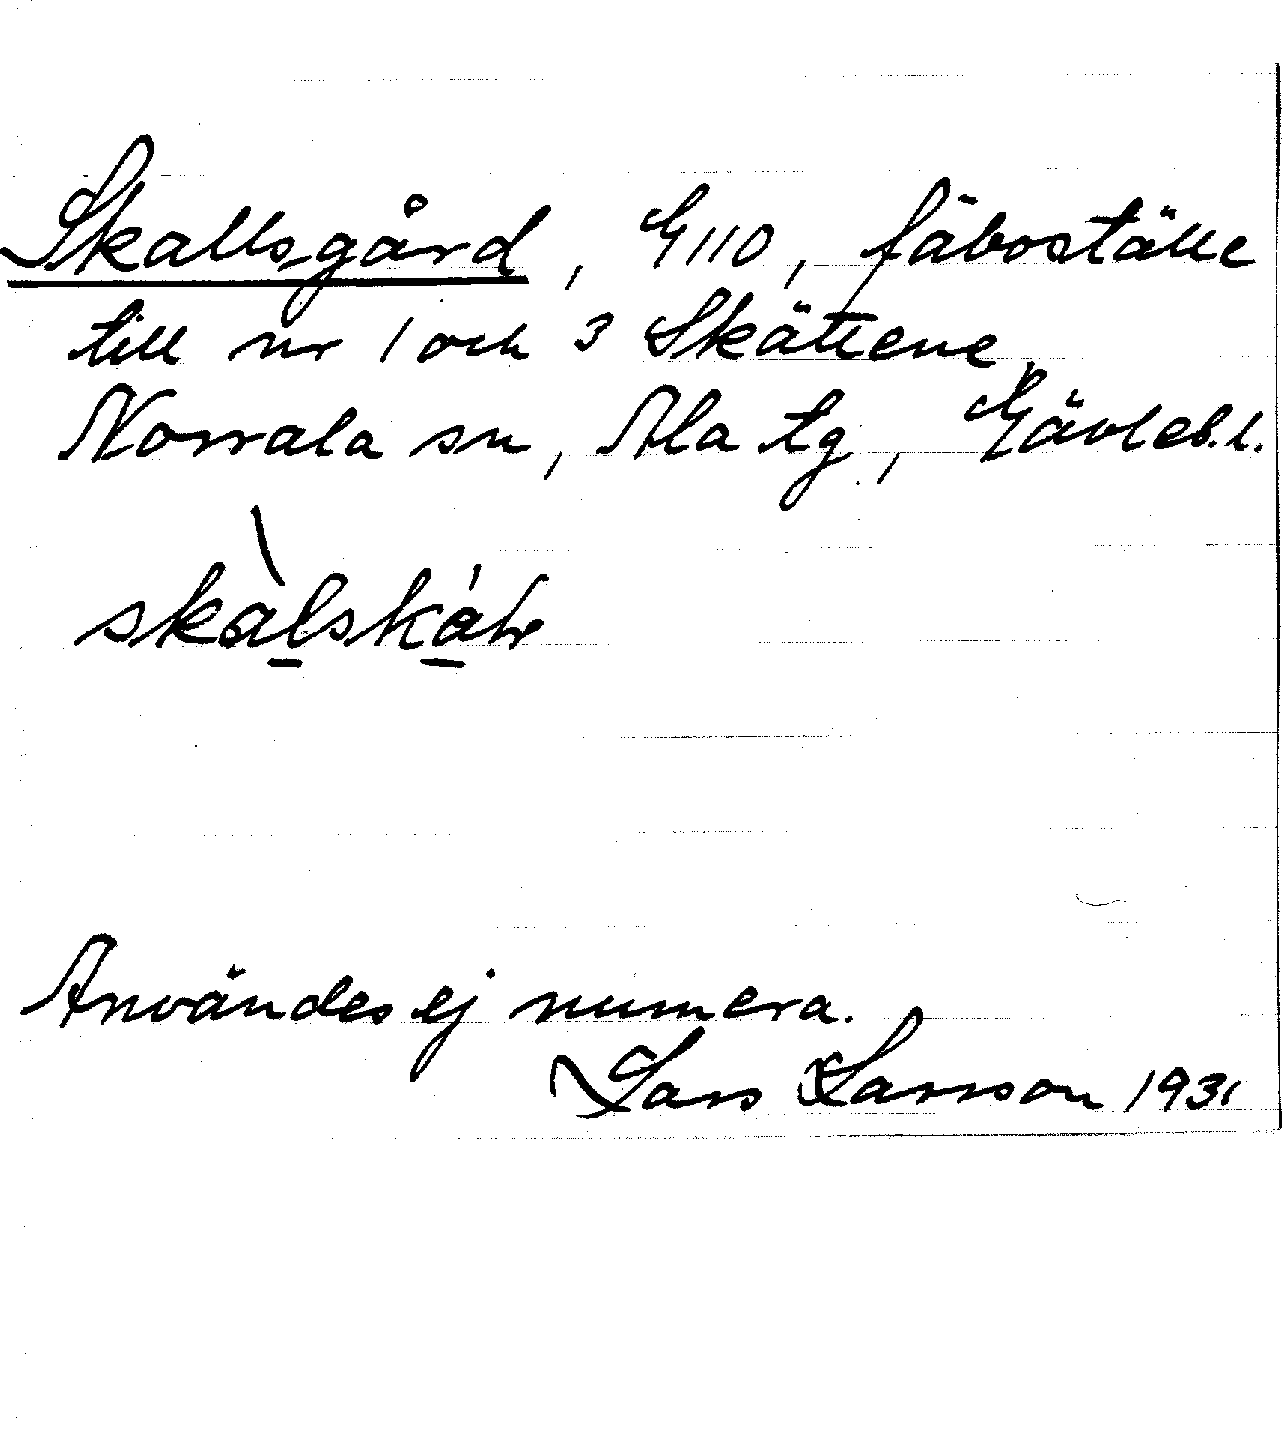 Skallsgård, G110, fäboställe
till nr 1 och 3 Skättene,
Norrala sn, Ala tg, Gävleb.l.
Användes ej numera.
Lars Larsson 1931